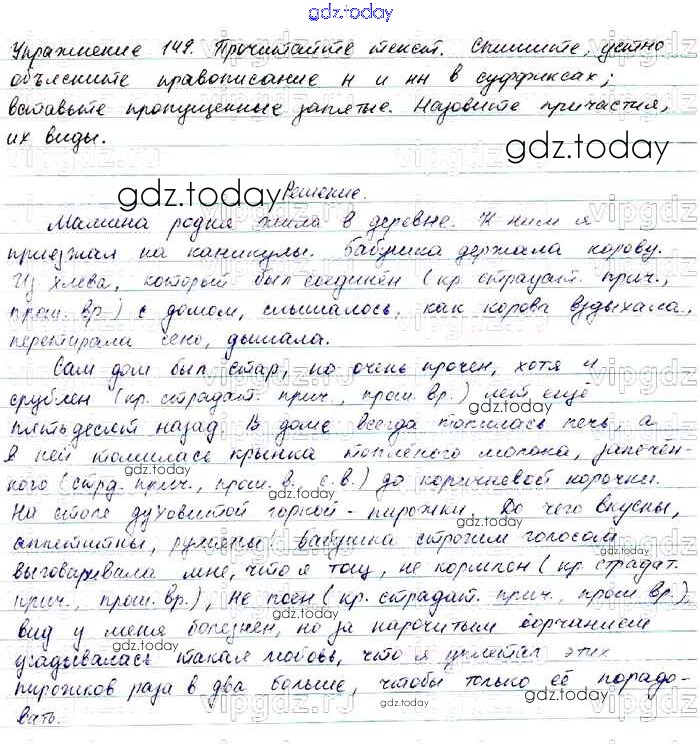 gdz.today
Упражнение 149. Прочитайте текст. Спишите, устно
объясните правописание н и нн в суффиксах;
вставьте пропущенные запятые. Назовите причастия,
их виды.
gdz.today
gdz.today
Решение.
Мамина родня жила в деревне. К ним я
приезжал на каникулы. Бабушка держала корову.
Из хлева, который был соединён (кр. страдат. прич.,
прош. вр.) с домом, слышалось, как корова вздыхала,
перетирала сено, дышала.
Сам дом был стар, но очень прочен, хотя и
срублен (кр. страдат. прич., прош. вр.) лет ещё
gdz.today
пятьдесят назад. В доме всегда топилась печь, а
в ней томилась крынка топлёного молока, запечён-
gdz.today
ного (стрд. прич., прош. в., с.в.) до коричневой корочки.
На столе духовитой горкой - пирожки. До чего вкусны,
gdz.today
аппетитны, румяны! Бабушка строгим голосом
выговаривала мне, что я тощ, не кормлен (кр. страдат.
gdz.today
прич., прош. вр.), не поен (кр. страдат. прич., прош. вр.),
вид у меня болезнен, но за нарочитым ворчанием
gdz.today
угадывалась такая любовь, что я уплетал этих
пирожков раза в два больше, чтобы только её порадо-
gdz.today
вать.